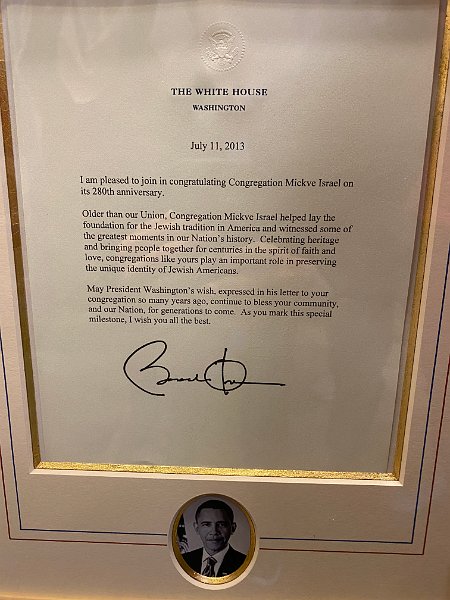 THE WHITE HOUSE
WASHINGTON
July 11, 2013
I am pleased to join in congratulating Congregation Mickve Israel on
its 280th anniversary.
Older than our Union, Congregation Mickve Israel helped lay the
foundation for the Jewish tradition in America and witnessed some of
the greatest moments in our Nation's history. Celebrating heritage
and bringing people together for centuries in the spirit of faith and
love, congregations like yours play an important role in preserving
the unique identity of Jewish Americans.
May President Washington's wish, expressed in his letter to your
congregation so many years ago, continue to bless your community,
and our Nation, for generations to come. As you mark this special
milestone, I wish you all the best.